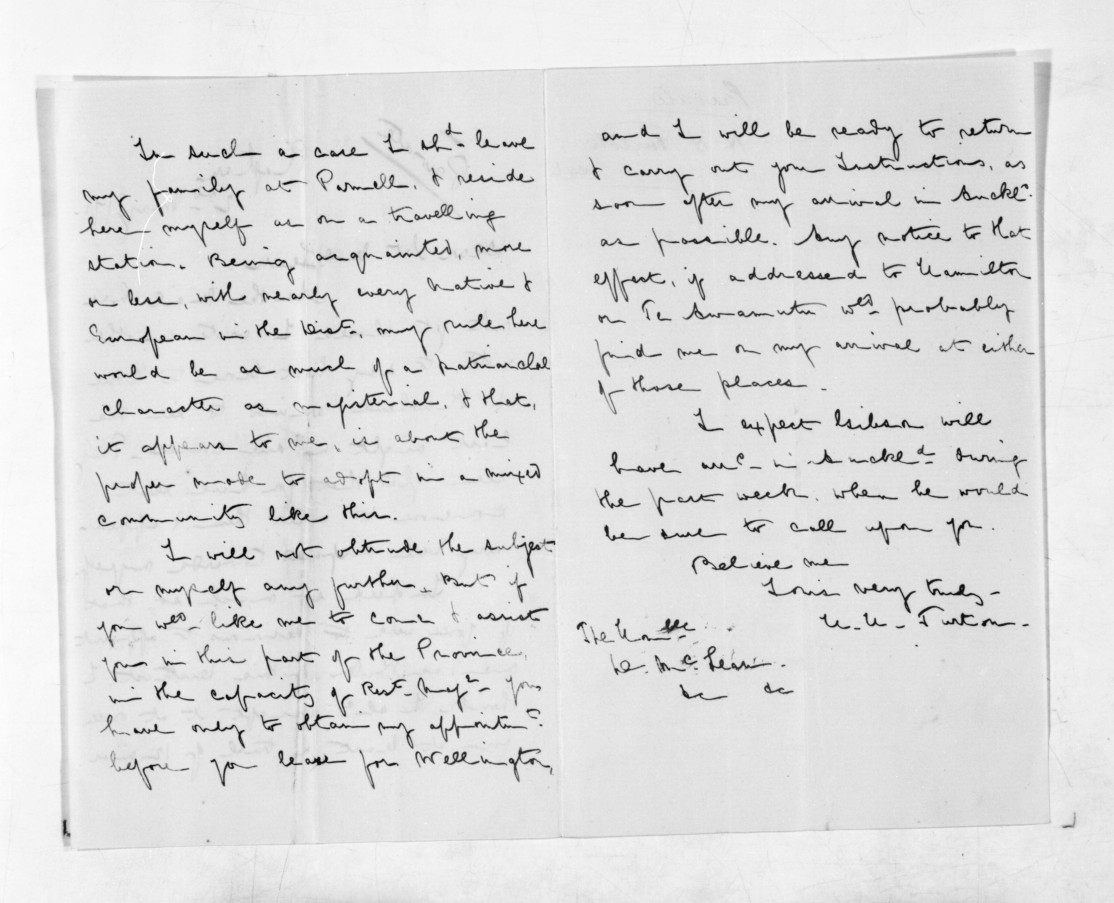 In such a case I sh.d leave
my family at Parnell, & reside
here myself as on a travelling
station. Being acquainted, more
or less, with nearly every Native &
European in the Dist., my rule here
would be as much of a patriarchal
character as magisterial, & that,
it appears to me, is about the
proper mode to adopt in a mixed
community like this.
I will not obtrude the subject
or myself any further. But if
you wd. like me to come & assist
you in this part of the Province,
in the capacity of Rest. Magte. you
have only to obtain my appointmt.
before you leave for Wellington,
and I will be ready to return
& carry out your Instructions, as
soon after my arrival in Auckld.
as possible. Any notice to that
effect, if addressed to Hamilton
or Te Awamutu wd. probably
find me on my arrival at either
of those places.
I expect Gibson will
have arrd. in Auckld. during
the past week, when he would
be sure to call upon you.
Believe me
Yours very truly -
H. H. Turton.
The Honble
D. McLean.
&c &c